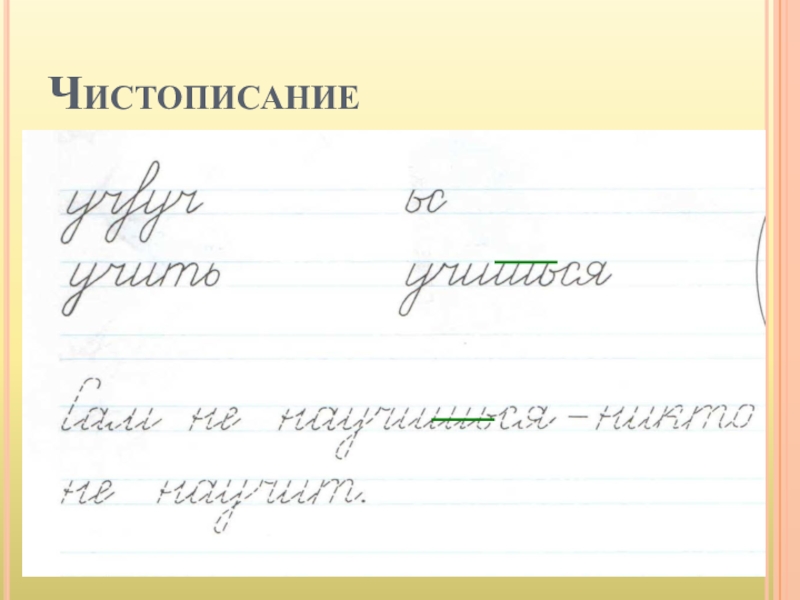 Чистописание
ьс
учить учишься
Сам не научишься – никто
не научит.